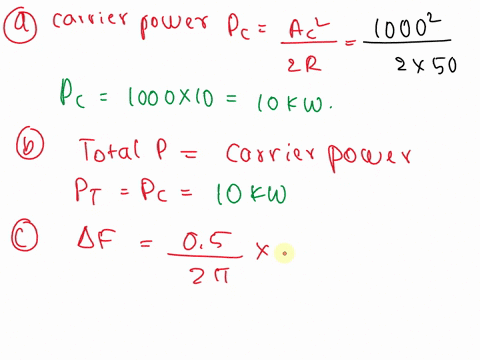 (a) carrier power Pc = Ac² / 2R = 1000² / 2 × 50
Pc = 1000×10 = 10 KW.
(b) Total P = carrier power
PT = Pc = 10 KW
(c) ΔF = 0.5 / 2π ×